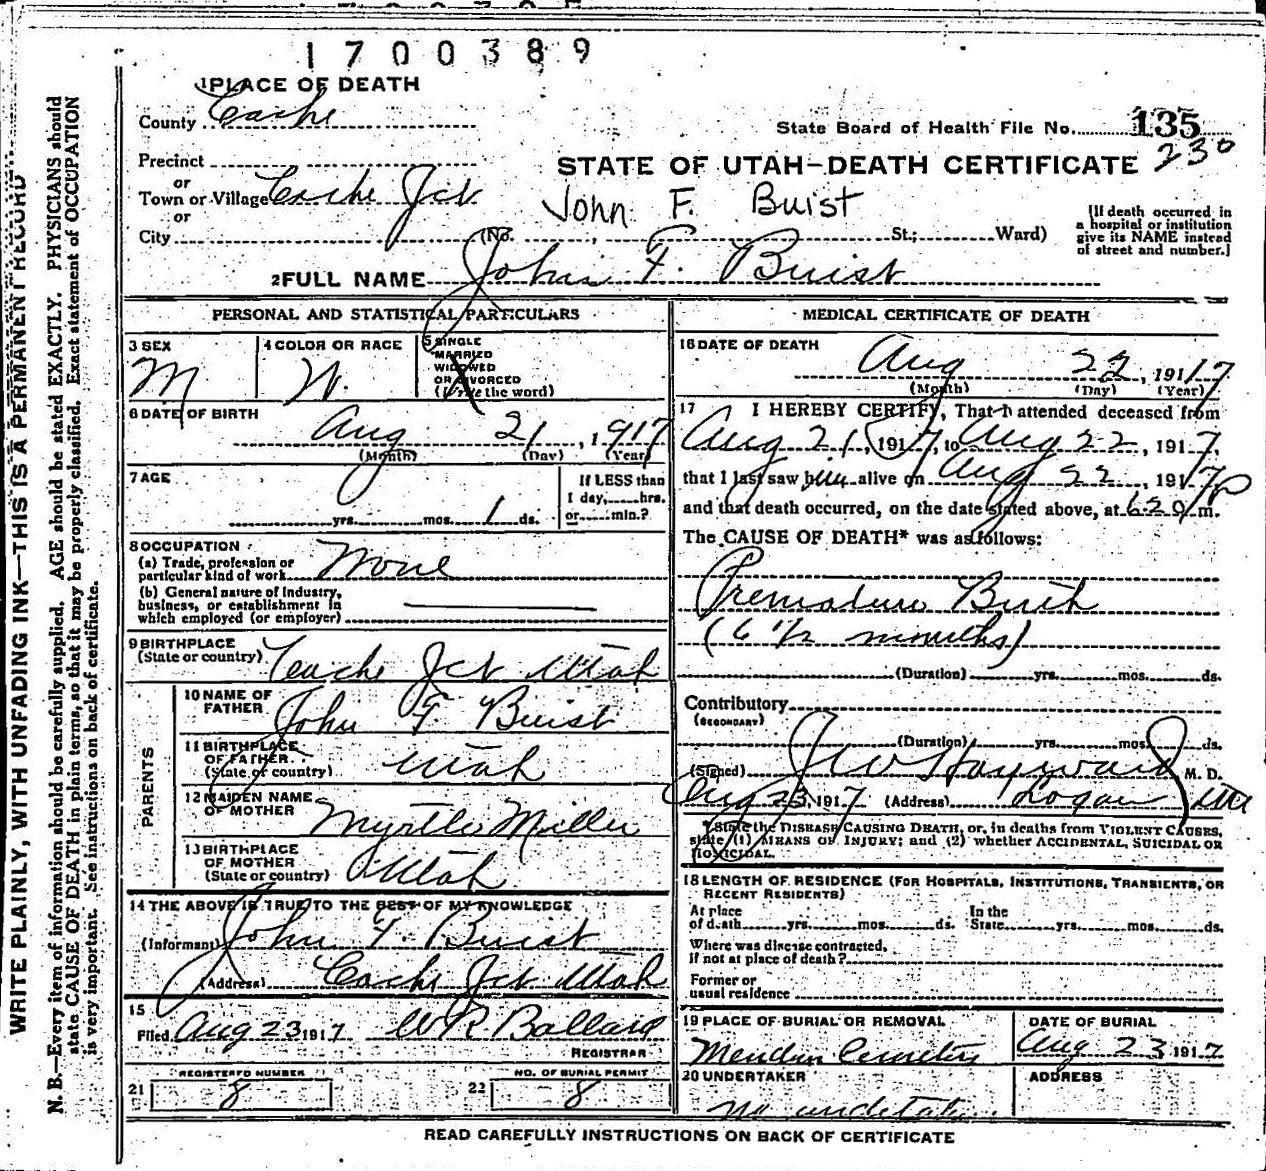 1700389
1 PLACE OF DEATH
County Cache
State Board of Health File No. 135
230
Precinct
or
Town or Village Cache Jct
STATE OF UTAH—DEATH CERTIFICATE
John F. Buist
or
City (No. , St.; Ward)
[If death occurred in
a hospital or institution
give its NAME instead
of street and number.]
2 FULL NAME John F. Buist
PERSONAL AND STATISTICAL PARTICULARS
3 SEX
M
4 COLOR OR RACE
W.
5 SINGLE
MARRIED
WIDOWED
OR DIVORCED
(Write the word)
6 DATE OF BIRTH
Aug 21, 1917
(Month) (Day) (Year)
7 AGE
yrs. mos. 1 ds.
If LESS than
1 day, hrs.
or min.?
8 OCCUPATION
(a) Trade, profession or
particular kind of work None
(b) General nature of Industry,
business, or establishment in
which employed (or employer)
9 BIRTHPLACE
(State or country) Cache Jct Utah
PARENTS
10 NAME OF
FATHER John F. Buist
11 BIRTHPLACE
OF FATHER
(State or country) Utah
12 MAIDEN NAME
OF MOTHER Myrtle Miller
13 BIRTHPLACE
OF MOTHER
(State or country) Utah
14 THE ABOVE IS TRUE TO THE BEST OF MY KNOWLEDGE
(Informant) John F. Buist
(Address) Cache Jct Utah
15
Filed Aug 23 1917 W R Ballard
REGISTRAR
REGISTERED NUMBER
21 8
NO. OF BURIAL PERMIT
22 8
MEDICAL CERTIFICATE OF DEATH
16 DATE OF DEATH
Aug 22, 1917
(Month) (Day) (Year)
17 I HEREBY CERTIFY, That I attended deceased from
Aug 21, 1917, to Aug 22, 1917,
that I last saw him alive on Aug 22, 1917
and that death occurred, on the date stated above, at 6:20 P m.
The CAUSE OF DEATH* was as follows:
Premature Birth
(6 1/2 months)
(Duration) yrs. mos. ds.
Contributory
(SECONDARY)
(Duration) yrs. mos. ds.
(Signed) J W Hayward M. D.
Aug 23, 1917 (Address) Logan Ut
*State the DISEASE CAUSING DEATH, or, in deaths from VIOLENT CAUSES,
state (1) MEANS OF INJURY; and (2) whether ACCIDENTAL, SUICIDAL OR
HOMICIDAL.
18 LENGTH OF RESIDENCE (FOR HOSPITALS, INSTITUTIONS, TRANSIENTS, OR
RECENT RESIDENTS)
At place
of death yrs. mos. ds.
In the
State yrs. mos. ds.
Where was disease contracted,
if not at place of death?
Former or
usual residence
19 PLACE OF BURIAL OR REMOVAL
Mendon Cemetery
DATE OF BURIAL
Aug 23 1917
20 UNDERTAKER
No undertaker
ADDRESS
READ CAREFULLY INSTRUCTIONS ON BACK OF CERTIFICATE
WRITE PLAINLY, WITH UNFADING INK—THIS IS A PERMANENT RECORD
N. B.—Every item of information should be carefully supplied. AGE should be stated EXACTLY. PHYSICIANS should
state CAUSE OF DEATH in plain terms, so that it may be properly classified. Exact statement of OCCUPATION
is very important. See instructions on back of certificate.